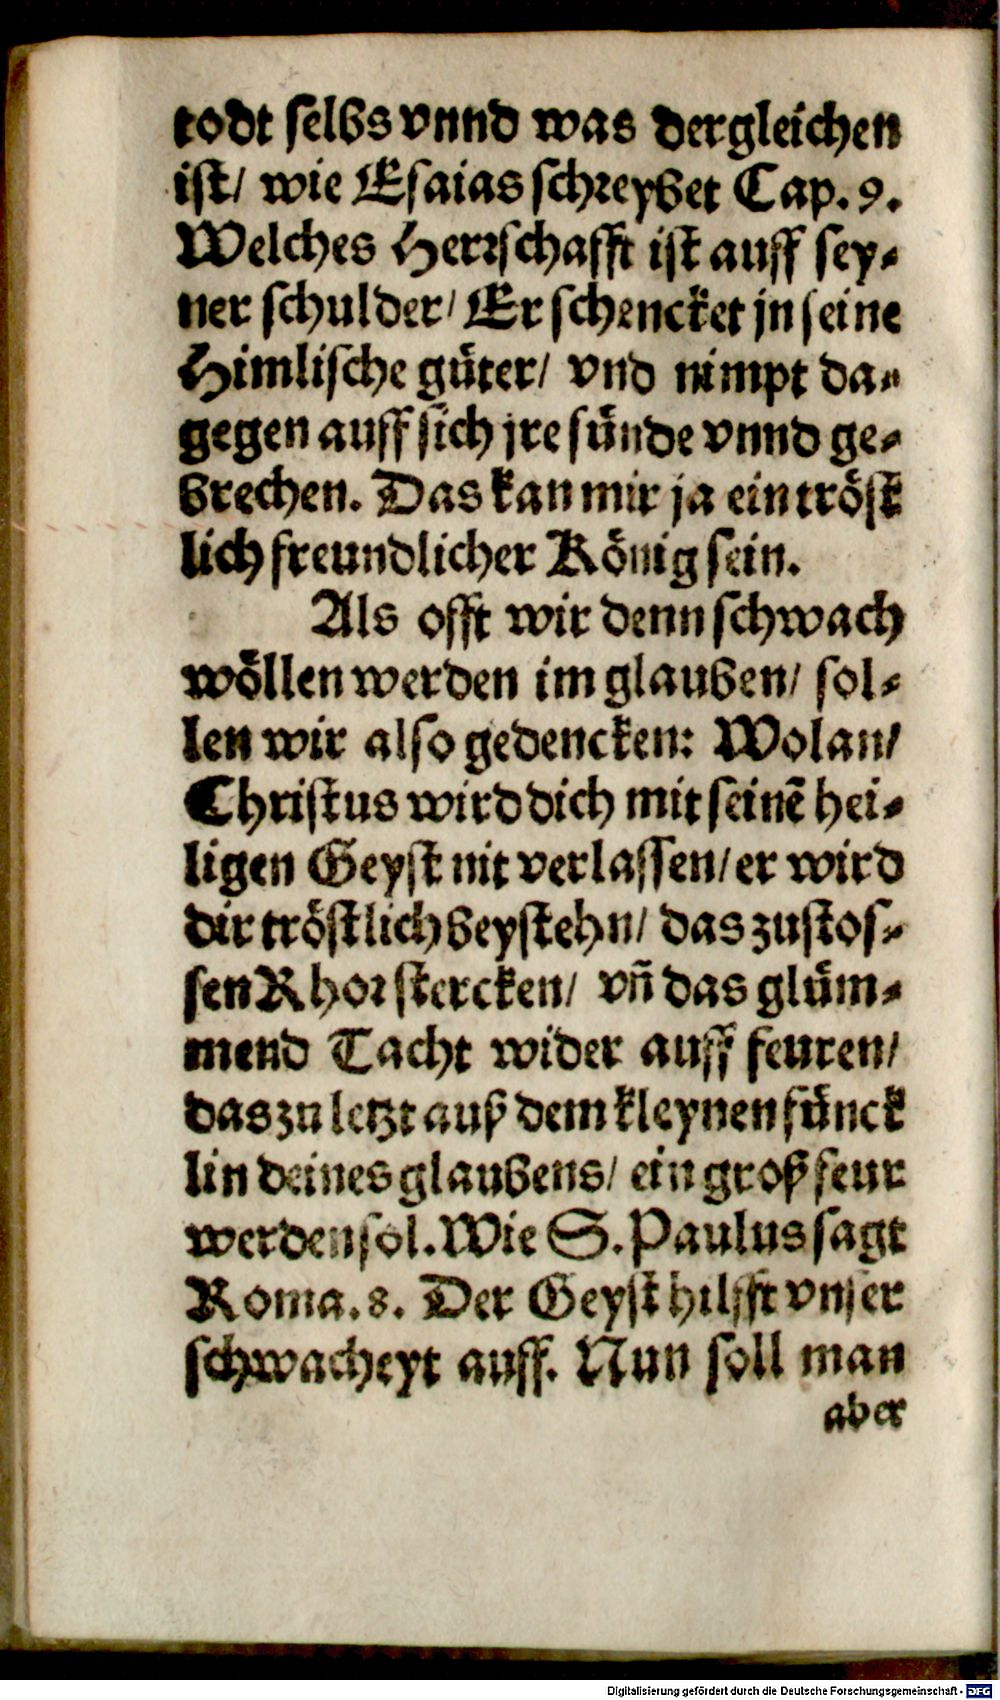 todt selbs vnnd was dergleichen
ist/ wie Esaias schreybet Cap. 9.
Welches Herrschafft ist auff sey-
ner schulder/ Er schencket jn seine
Himlische güter/ vnd nimpt da-
gegen auff sich jre sünde vnnd ge-
brechen. Das kan mir ja ein tröst
lich freundlicher König sein.
Als offt wir denn schwach
wöllen werden im glauben/ sol-
len wir also gedencken: Wolan/
Christus wird dich mit seinē hei-
ligen Geyst nit verlassen/ er wird
dir tröstlich beystehn/ das zustos-
sen Rhor stercken/ vñ das glüm-
mend Tacht wider auff feuren/
das zu letzt auß dem kleynen fünck
lin deines glaubens/ ein groß feur
werden sol. Wie S. Paulus sagt
Roma. 8. Der Geyst hilfft vnser
schwacheyt auff. Nun soll man
aber
Digitalisierung gefördert durch die Deutsche Forschungsgemeinschaft - DFG